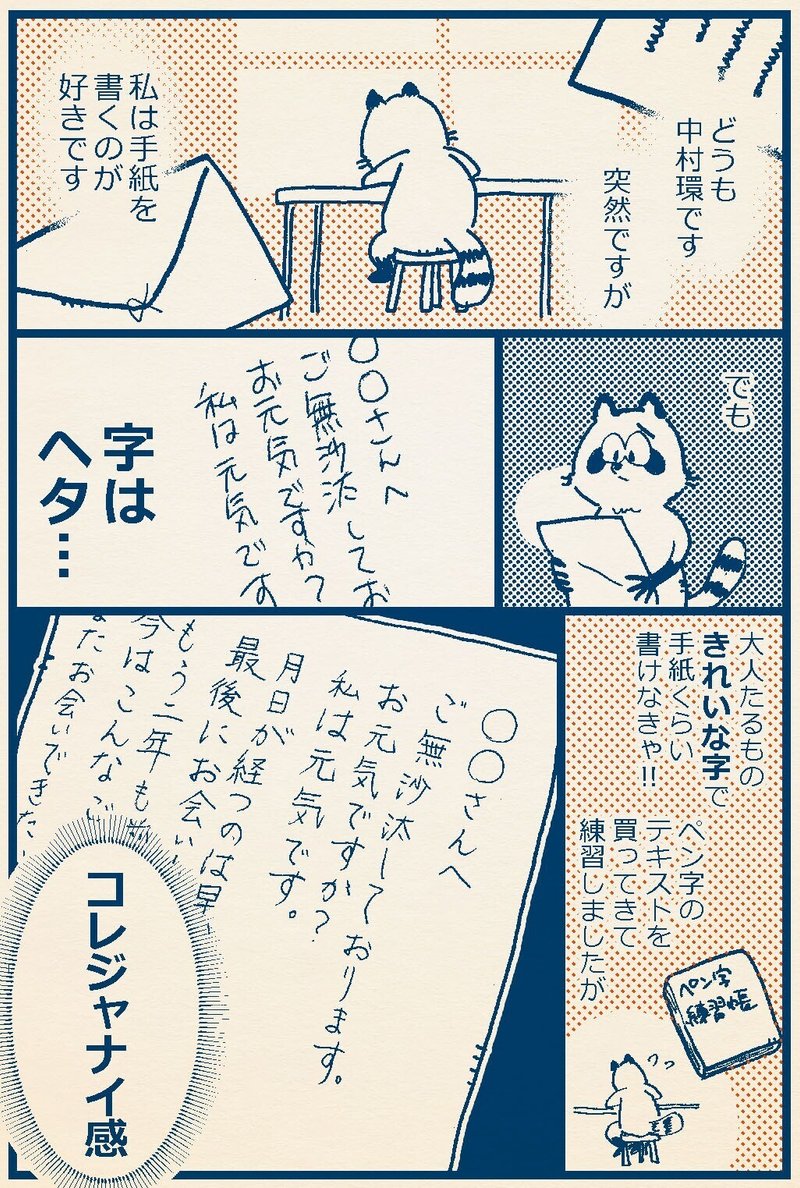 どうも
中村環です
突然ですが
私は手紙を
書くのが
好きです
でも
〇〇さんへ
ご無沙汰してお
お元気ですか?
私は元気です
字は
ヘタ…
大人たるもの
きれいな字で
手紙くらい
書けなきゃ!!
ペン字の
テキストを
買ってきて
練習しましたが
ペン字
練習帳
〇〇さんへ
ご無沙汰しております。
お元気ですか?
私は元気です。
月日が経つのは早
最後にお会い
もう二年も
今はこんなご
たお会いできた
コレジャナイ感